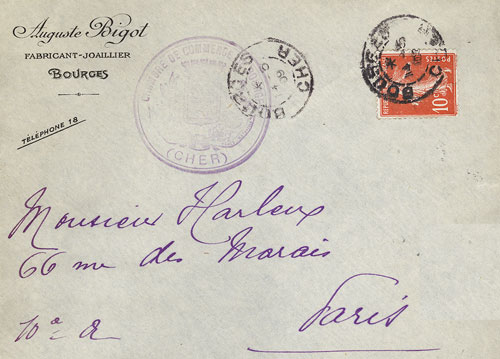 Auguste Bigot
FABRICANT-JOAILLIER
BOURGES
TÉLÉPHONE 18
CHAMBRE DE COMMERCE
(CHER)
BOURGES
CHER
BOURGES
10c
Monsieur Harleux
66 rue des Marais
Paris